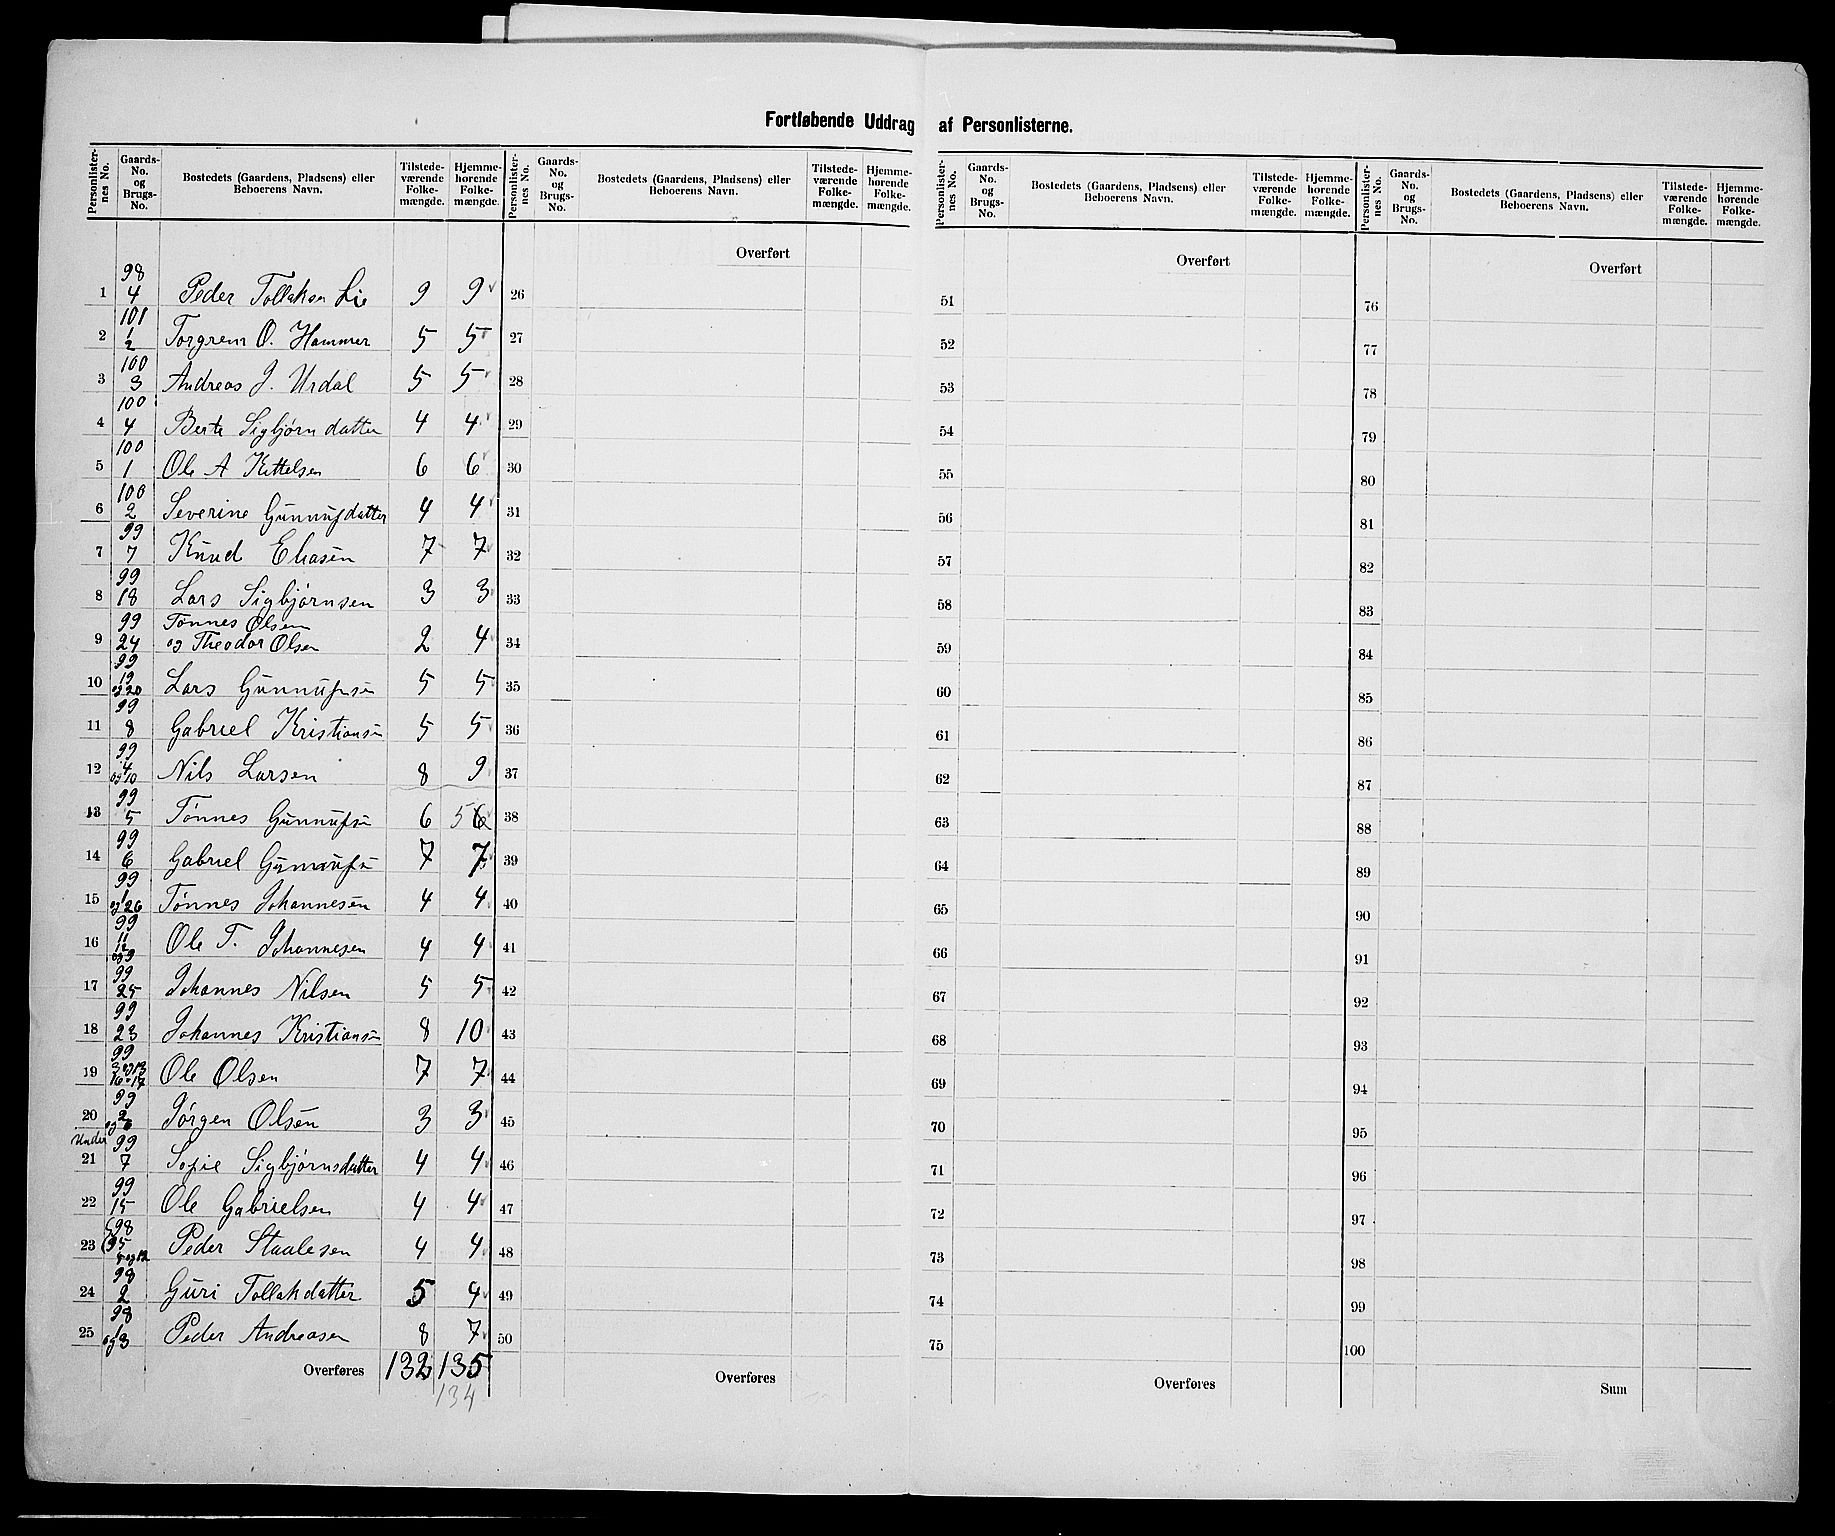 Fortløbende Uddrag af Personlisterne.
Personlister-nes No. | Gaards-No. og Brugs-No. | Bostedets (Gaardens, Pladsens) eller Beboerens Navn. | Tilstede-værende Folke-mængde. | Hjemme-hørende Folke-mængde. | Personlister-nes No. | Gaards-No. og Brugs-No. | Bostedets (Gaardens, Pladsens) eller Beboerens Navn. | Tilstede-værende Folke-mængde. | Hjemme-hørende Folke-mængde. | Personlister-nes No. | Gaards-No. og Brugs-No. | Bostedets (Gaardens, Pladsens) eller Beboerens Navn. | Tilstede-værende Folke-mængde. | Hjemme-hørende Folke-mængde. | Personlister-nes No. | Gaards-No. og Brugs-No. | Bostedets (Gaardens, Pladsens) eller Beboerens Navn. | Tilstede-værende Folke-mængde. | Hjemme-hørende Folke-mængde.
Overført Overført Overført
1 98 4 Peder Tollaksen Lie 9 9 26 51 76
2 101 1 2 Torgrem O. Hammer 5 5 27 52 77
3 100 3 Andreas J. Urdal 5 5 28 53 78
4 100 4 Berte Sigbjørndatter 4 4 29 54 79
5 100 1 Ole A Kittelsen 6 6 30 55 80
6 100 2 Severine Gunnufdatter 4 4 31 56 81
7 99 7 Knud Eliasen 7 7 32 57 82
8 99 18 Lars Sigbjørnsen 3 3 33 58 83
9 99 24 Tønnes Olsen
og Theodor Olsen 2 4 34 59 84
10 99 19 og 20 Lars Gunnufsen 5 5 35 60 85
11 99 8 Gabriel Kristiansen 5 5 36 61 86
12 99 4 og 10 Nils Larsen 8 9 37 62 87
13 99 5 Tønnes Gunnufsen 6 5 6 38 63 88
14 99 6 Gabriel Gunnufsen 7 7 39 64 89
15 99 1 og 26 Tønnes Johannesen 4 4 40 65 90
16 99 og 9 Ole T. Johannesen 4 4 41 66 91
17 99 25 Johannes Nilsen 5 5 42 67 92
18 99 23 Johannes Kristiansen 8 10 43 68 93
19 99 3 og 13 16-17 Ole Olsen 7 7 44 69 94
20 99 2 og Jørgen Olsen 3 3 45 70 95
Under
21 99 7 Sofie Sigbjørnsdatter 4 4 46 71 96
22 99 15 Ole Gabrielsen 4 4 47 72 97
23 98 5 og 12 Peder Staalesen 4 4 48 73 98
24 98 2 Guri Tollakdatter 5 4 49 74 99
25 98 1 og 3 Peder Andreasen 8 7 50 75 100
Overføres 132 135 Overføres Overføres Sum
134